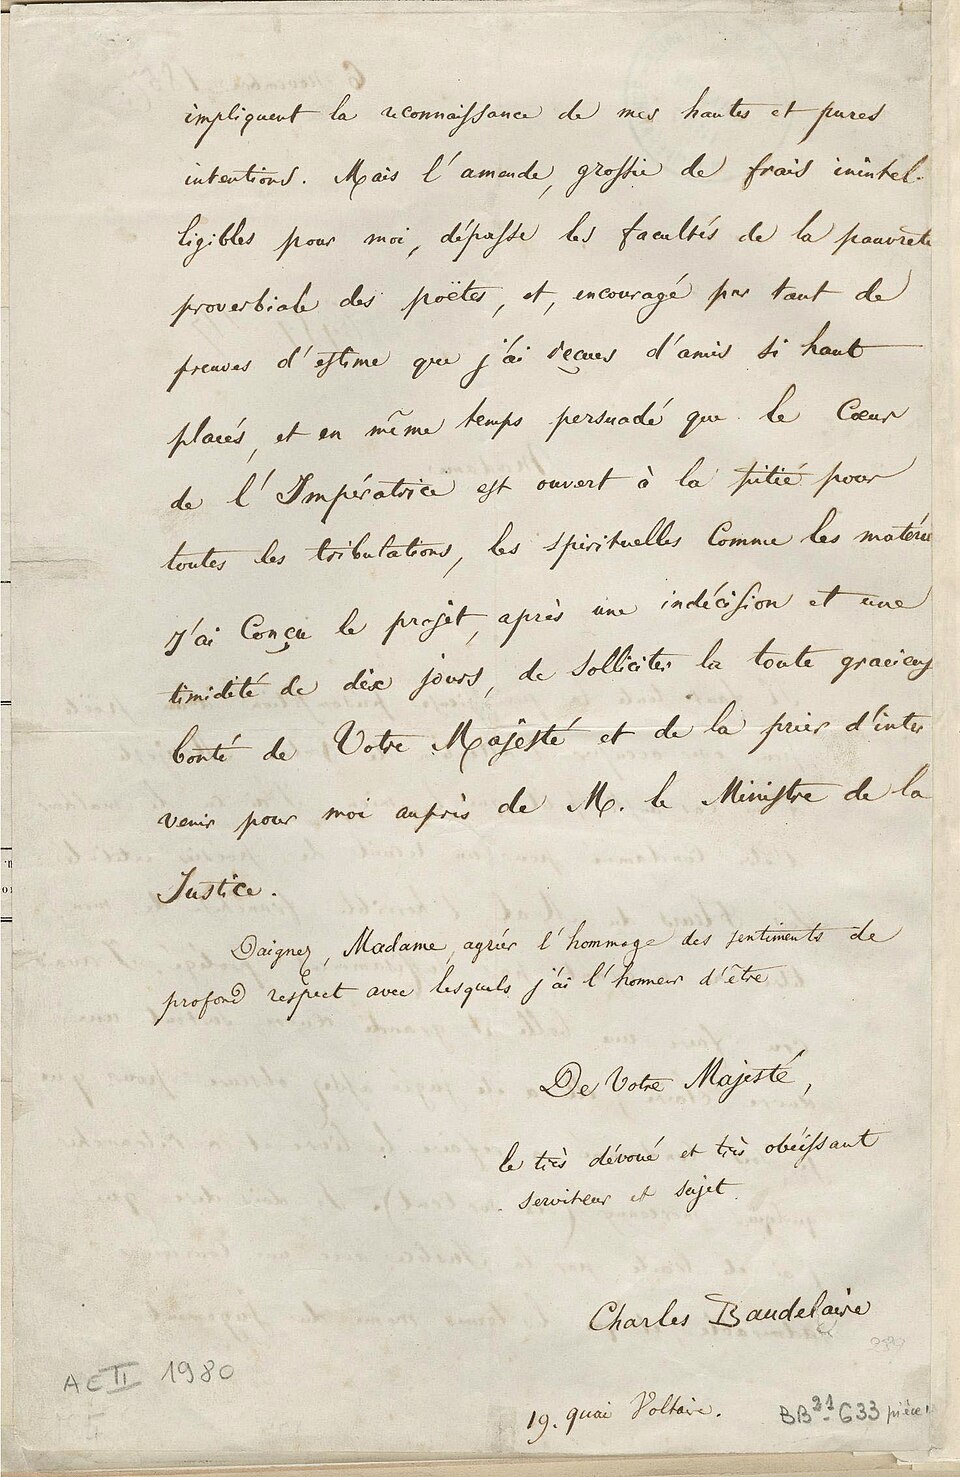 impliquent la reconnaissance de mes hautes et pures
intentions. Mais l'amende, grossie de frais inintel-
ligibles pour moi, dépasse les facultés de la pauvreté
proverbiale des poëtes, et, encouragé par tant de
preuves d'estime que j'ai reçues d'amis si haut
placés, et en même temps persuadé que le Cœur
de l'Impératrice est ouvert à la pitié pour
toutes les tribulations, les spirituelles comme les matérie
J'ai Conçu le projet, après une indécision et une
timidité de dix jours, de solliciter la toute gracieus
bonté de Votre Majesté et de la prier d'inter
venir pour moi auprès de M. le Ministre de la
Justice.
Daignez, Madame, agréer l'hommage des sentiments de
profond respect avec lesquels j'ai l'honneur d'être
De Votre Majesté,
le très dévoué et très obéissant
serviteur et sujet.
Charles Baudelaire
19. quai Voltaire.
AE II 1980
BB 21 - 633 pièce 1